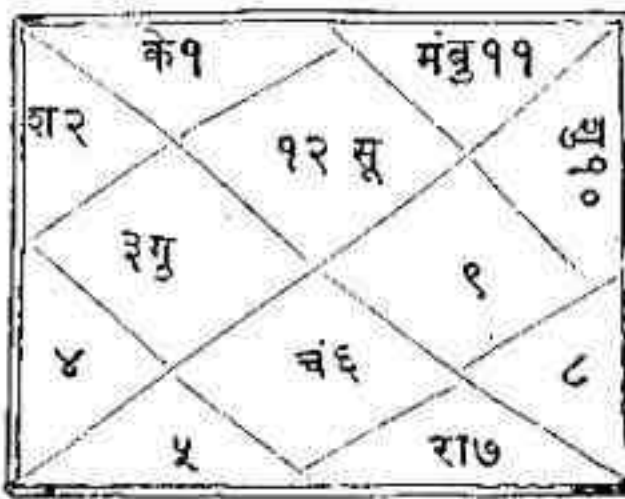 के१
मंबु११
श२
१२ सू
शु१०
३गु
९
४
चं६
८
५
रा७